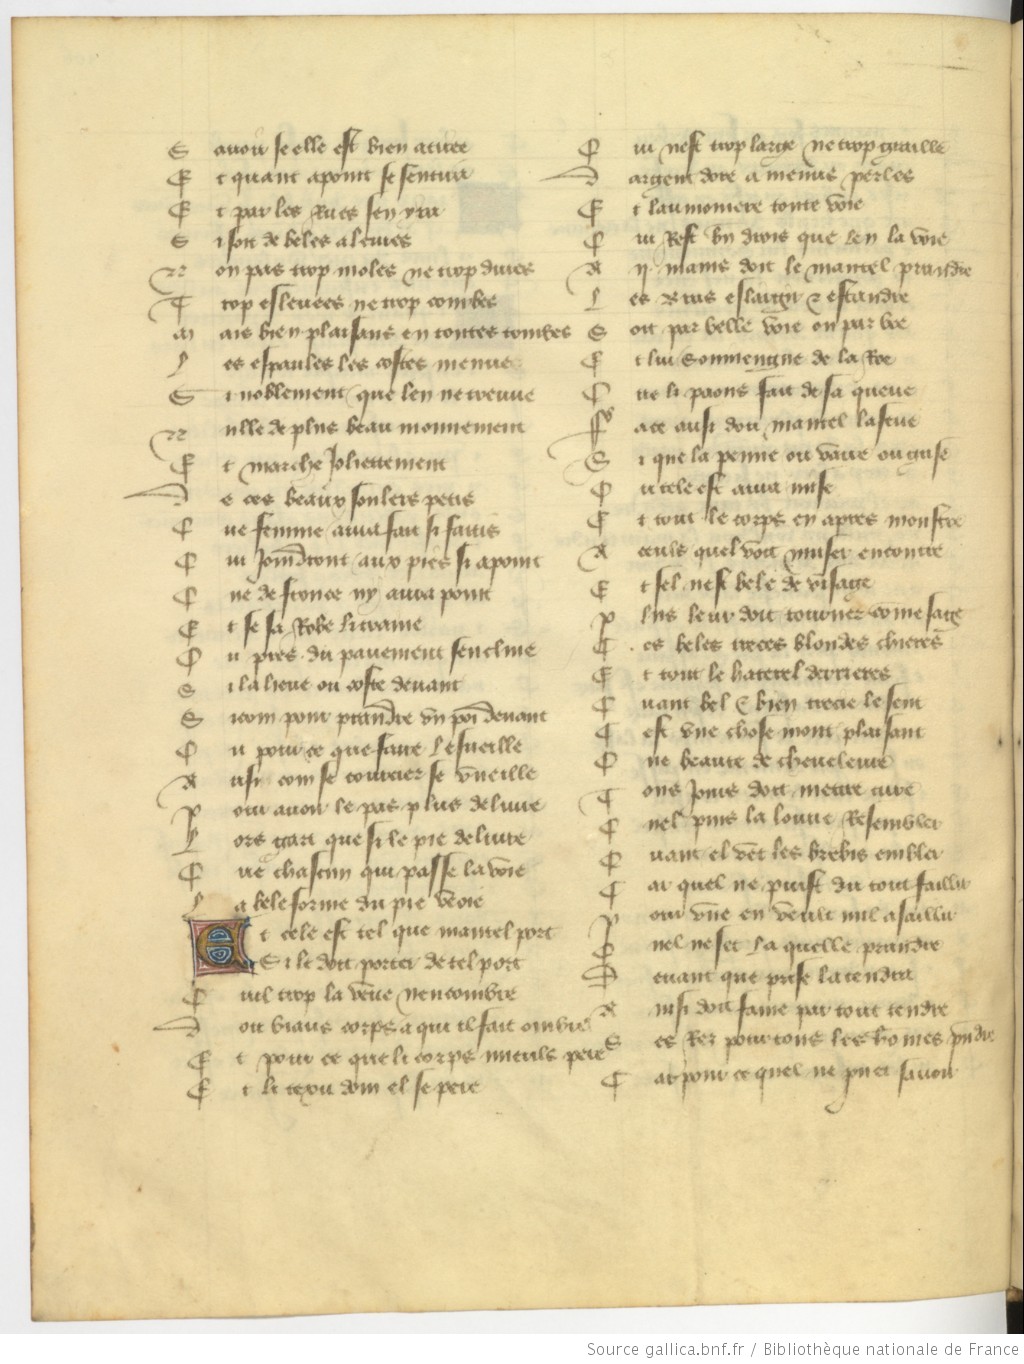 S avoir se elle est bien atiree
E t quant apoint se sentira
E t par les Rues sen yra
S i soit de beles aleures
N on pas trop moles ne trop dures
T rop eslevees ne trop corbes
M ais bien plaisans en toutes tourbes
L es espaules les costes menue
S i noblement que len ne treuve
N ulle de plus beau mouvement
E t marche Joliettement
D e ces beaux soulers petis
Q ue femme aura fait si faitis
Q ui Joindront aux pies si apoint
Q ne de fronce ny aura point
E t se sa Robe li traine
O u pres du pavement sencline
S i la lieve ou coste devant
S icom pour prandre un poi devant
O u pour ce que faire le sueille
A usi com se courcier se vueille
P our avoir le pas plus delivre
L ors gart que si le pie delivre
Q ue chascun qui passe la voie
L a bele forme du pie voie
E t cele est tel que mantel port
Si le doit porter de tel port
Q uil trop la veue nencombre
D ou biaus corps a qui il fait ombre
E t pour ce que li corps mieuls pere
E t li texu dom el se pere
Q ui nest trop large ne trop graille
D argent dore a menus perles
E t laumoniere toute voie
Q ui Rest bn drois que len la voie
A ij. mains doit le mantel prandre
L es bras eslargir & estandre
S oit par belle voie ou par boe
E t lui souviengne de la Roe
Q ue li paons fait de sa queue
Ff ace ausi dou mantel la seue
S i que la penne ou vaire ou grise
O u tele est aura mise
E t tout le corps en apres monstre
A ceuls quel voit muser encontre
E t sel nest bele de visage
P lus leur doit tourner come sage
C es beles treces blondes chieres
E t tout le haterel derrieres
Q uant bel & bien trecie le sent
C est une chose mout plaisant
Q ue beaute de cheveleure
T ous Jours doit mettre cure
Q uel puis la louve Resembler
Q uant el vet les brebis embler
C ar quel ne puist du tout faillir
P our une en veult mil asaillir
Q uel ne set la quelle prandre
D evant que prise la tendra
A insi doit fame par tout tendre
S es Rez pour tous les homes prandre
C ar pour ce quel ne puet savoir
Source gallica.bnf.fr / Bibliothèque nationale de France